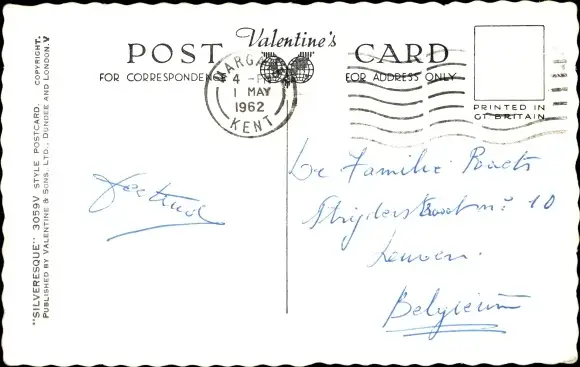 POST Valentine's CARD
FOR CORRESPONDENCE FOR ADDRESS ONLY
MARGA
4 - PM
1 MAY
1962
KENT
PRINTED IN
GT BRITAIN
"SILVERESQUE" 3059V STYLE POSTCARD. COPYRIGHT.
PUBLISHED BY VALENTINE & SONS, LTD., DUNDEE AND LONDON. V
De Familie
10
Leuven.
Belgium